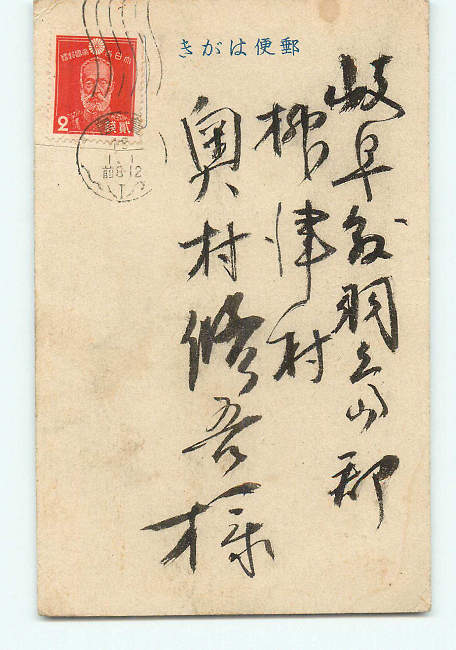 郵便はがき
岐阜縣羽島郡
柳津村
奥村修吾様
大日本帝國郵便
2
貳銭
1.1
前8-12